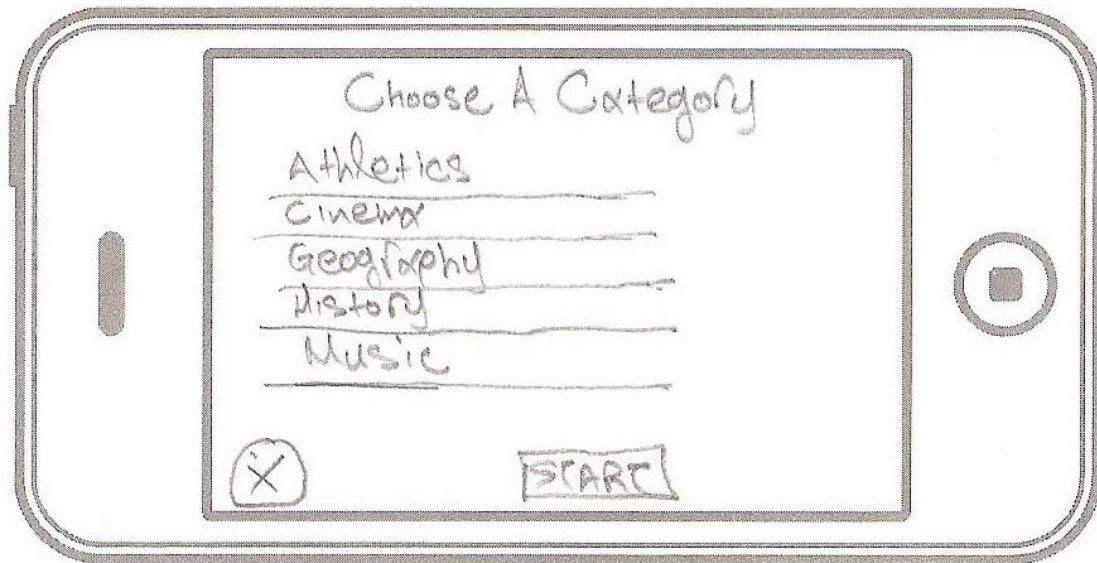 Choose A Category
Athletics
Cinema
Geography
History
Music
X
START